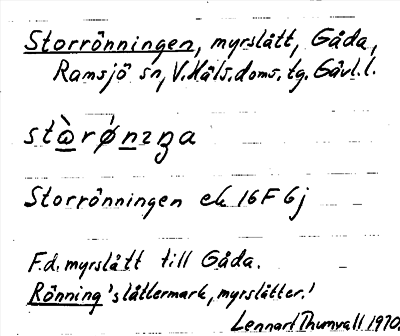 Storrönningen, myrslått, Gåda,
Ramsjö sn, V. Häls. doms. tg. Gävl. l.
stὼ̲rǿn̲ɿŋa
Storrönningen ek 16F 6j
F.d. myrslått till Gåda.
Rönning 'slåttermark, myrslåtter.'
Lennart Thurvall 1970.